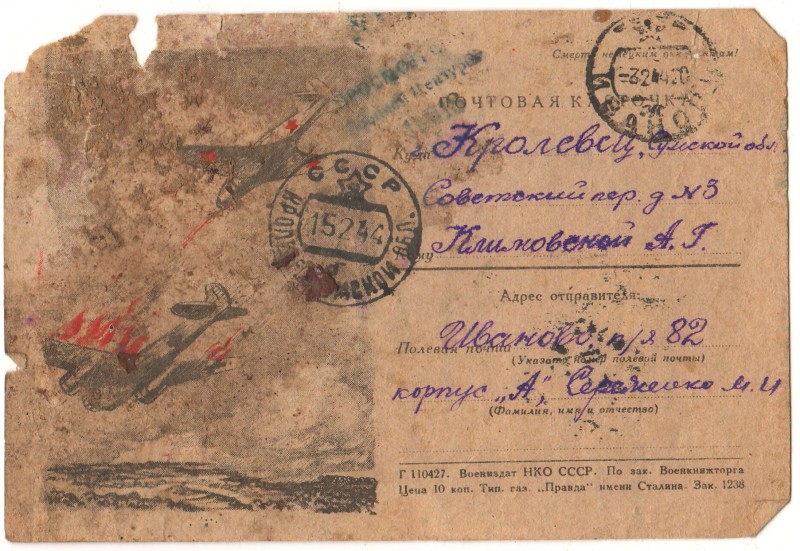 Смерть немецким оккупантам!
ПОЧТОВАЯ КАРТОЧКА
Куда Кролевец, Сумской обл.
Советский пер. д N3
Кому Климовской А. Г.
Адрес отправителя:
Полевая почта Иваново, п/я 82
(Указать номер полевой почты)
корпус „А", М. И
(Фамилия, имя и отчество)
Г 110427. Воениздат НКО СССР. По зак. Военкнижторга
Цена 10 коп. Тип. газ. „Правда" имени Сталина. Зак. 1238
СССР
15244